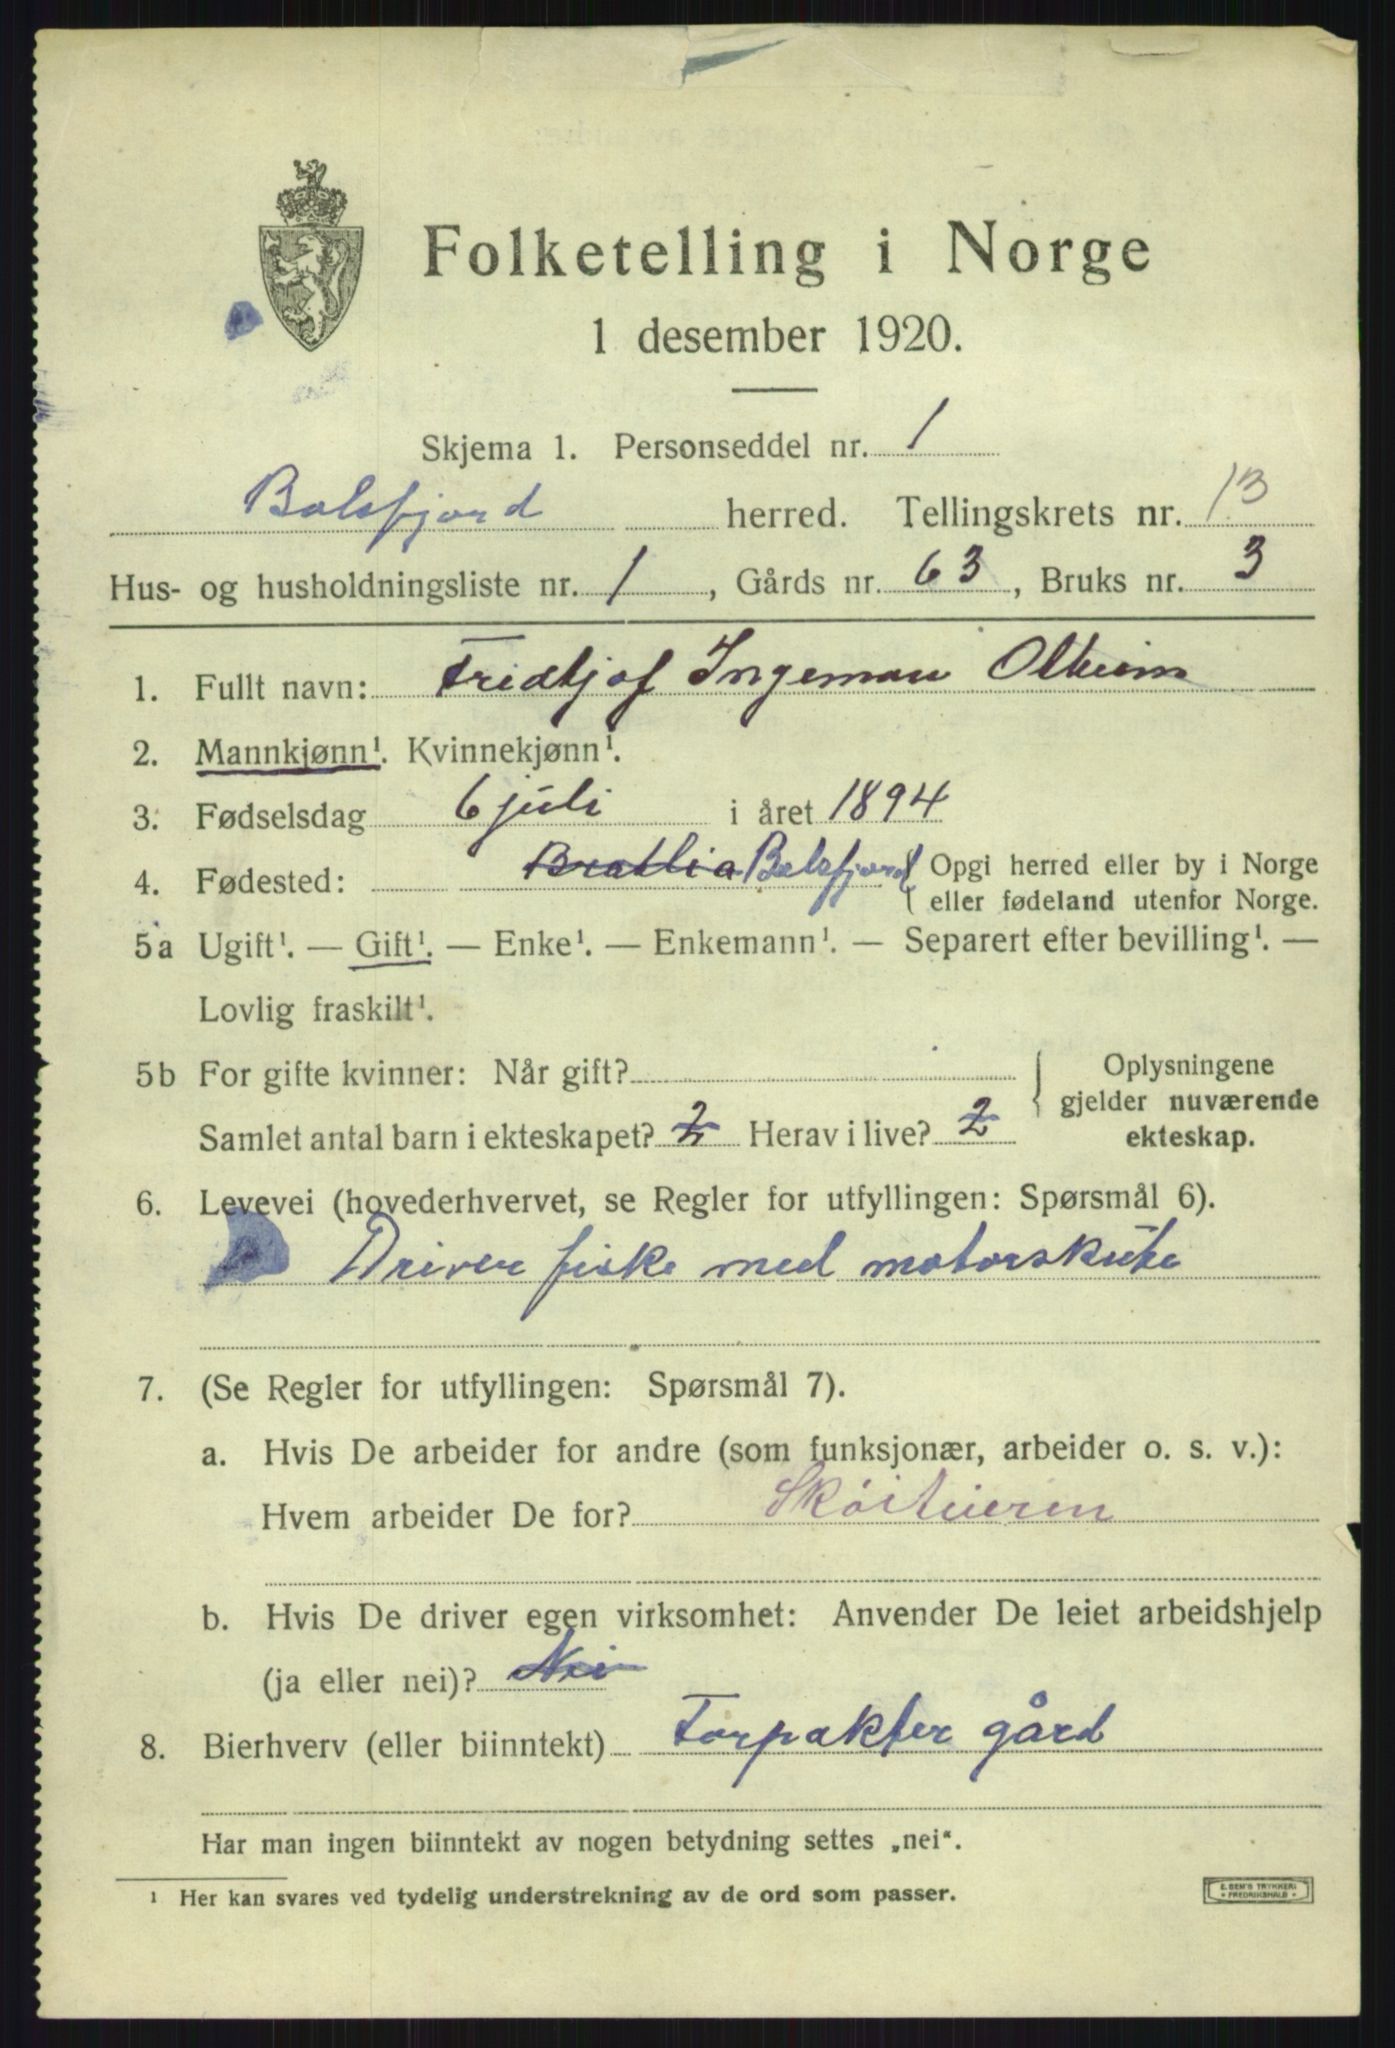 Folketelling i Norge
1 desember 1920.
Skjema 1. Personseddel nr. 1
Balsfjord herred. Tellingskrets nr. 13
Hus- og husholdningsliste nr. 1, Gårds nr. 63, Bruks nr. 3
1. Fullt navn: Fridtjof Ingeman Olheim
2. Mannkjønn¹. Kvinnekjønn¹.
3. Fødselsdag 6 juli i året 1894
4. Fødested: Bratlia Balsfjord { Opgi herred eller by i Norge
eller fødeland utenfor Norge.
5a Ugift¹. — Gift¹. — Enke¹. — Enkemann¹. — Separert efter bevilling¹. —
Lovlig fraskilt¹.
5b For gifte kvinner: Når gift? { Oplysningene
gjelder nuværende
Samlet antal barn i ekteskapet? 2 Herav i live? 2 ekteskap.
6. Levevei (hovederhvervet, se Regler for utfyllingen: Spørsmål 6).
Driver fiske med motorskute
7. (Se Regler for utfyllingen: Spørsmål 7).
a. Hvis De arbeider for andre (som funksjonær, arbeider o. s. v.):
Hvem arbeider De for?
b. Hvis De driver egen virksomhet: Anvender De leiet arbeidshjelp
(ja eller nei)? Nei
8. Bierhverv (eller biinntekt) Forpakter gård
Har man ingen biinntekt av nogen betydning settes „nei“.
¹ Her kan svares ved tydelig understrekning av de ord som passer.
E. SEM'S TRYKKERI
• FREDRIKSHALD •